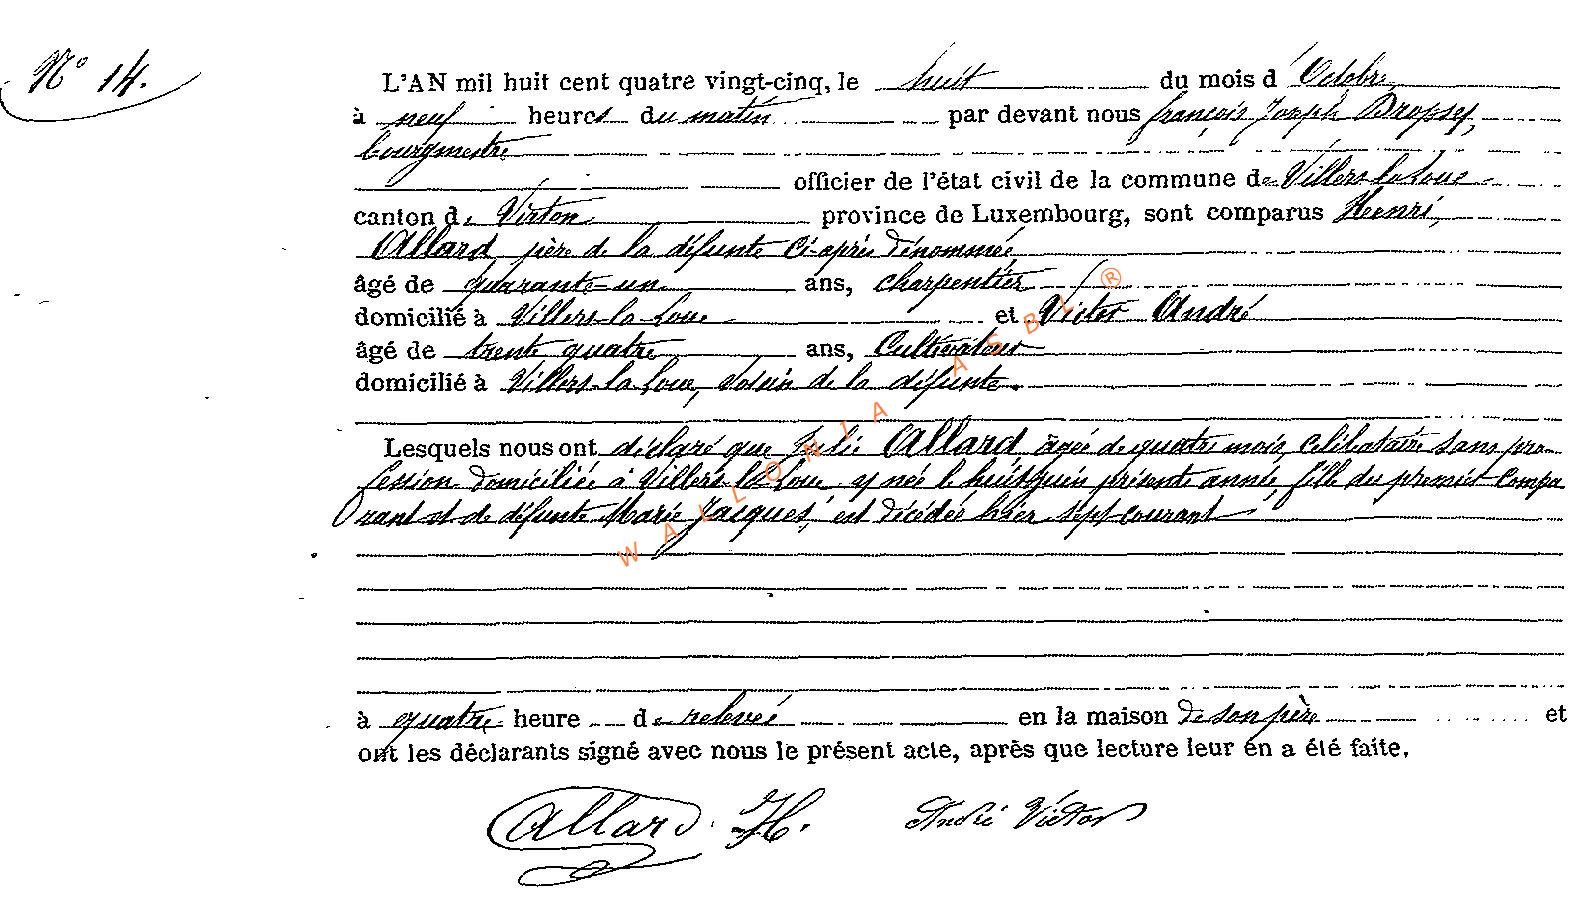 N° 14.
L'AN mil huit cent quatre vingt-cinq, le huit du mois d'Octobre
à neuf heures du matin par devant nous françois Joseph Dropsy,
bourgmestre
officier de l'état civil de la commune de Villers la Loue
canton de Virton province de Luxembourg, sont comparus Henri,
Allard père de la défunte ci-après dénommée
âgé de quarante-un ans, charpentier
domicilié à Villers-la-Loue et Victor André
âgé de trente quatre ans, Cultivateur
domicilié à Villers-la-Loue, voisin de la défunte.
Lesquels nous ont déclaré que Julie Allard âgée de quatre mois, célibataire sans pro-
fession domiciliée à Villers-la-Loue y née le huit juin présente année, fille du premier compa
rant et de défunte Marie Jacques, est décédée hier sept courant
à quatre heure de relevée en la maison de son père et
ont les déclarants signé avec nous le présent acte, après que lecture leur en a été faite.
Allard H. André Victor
WALLONIA ASBL ®